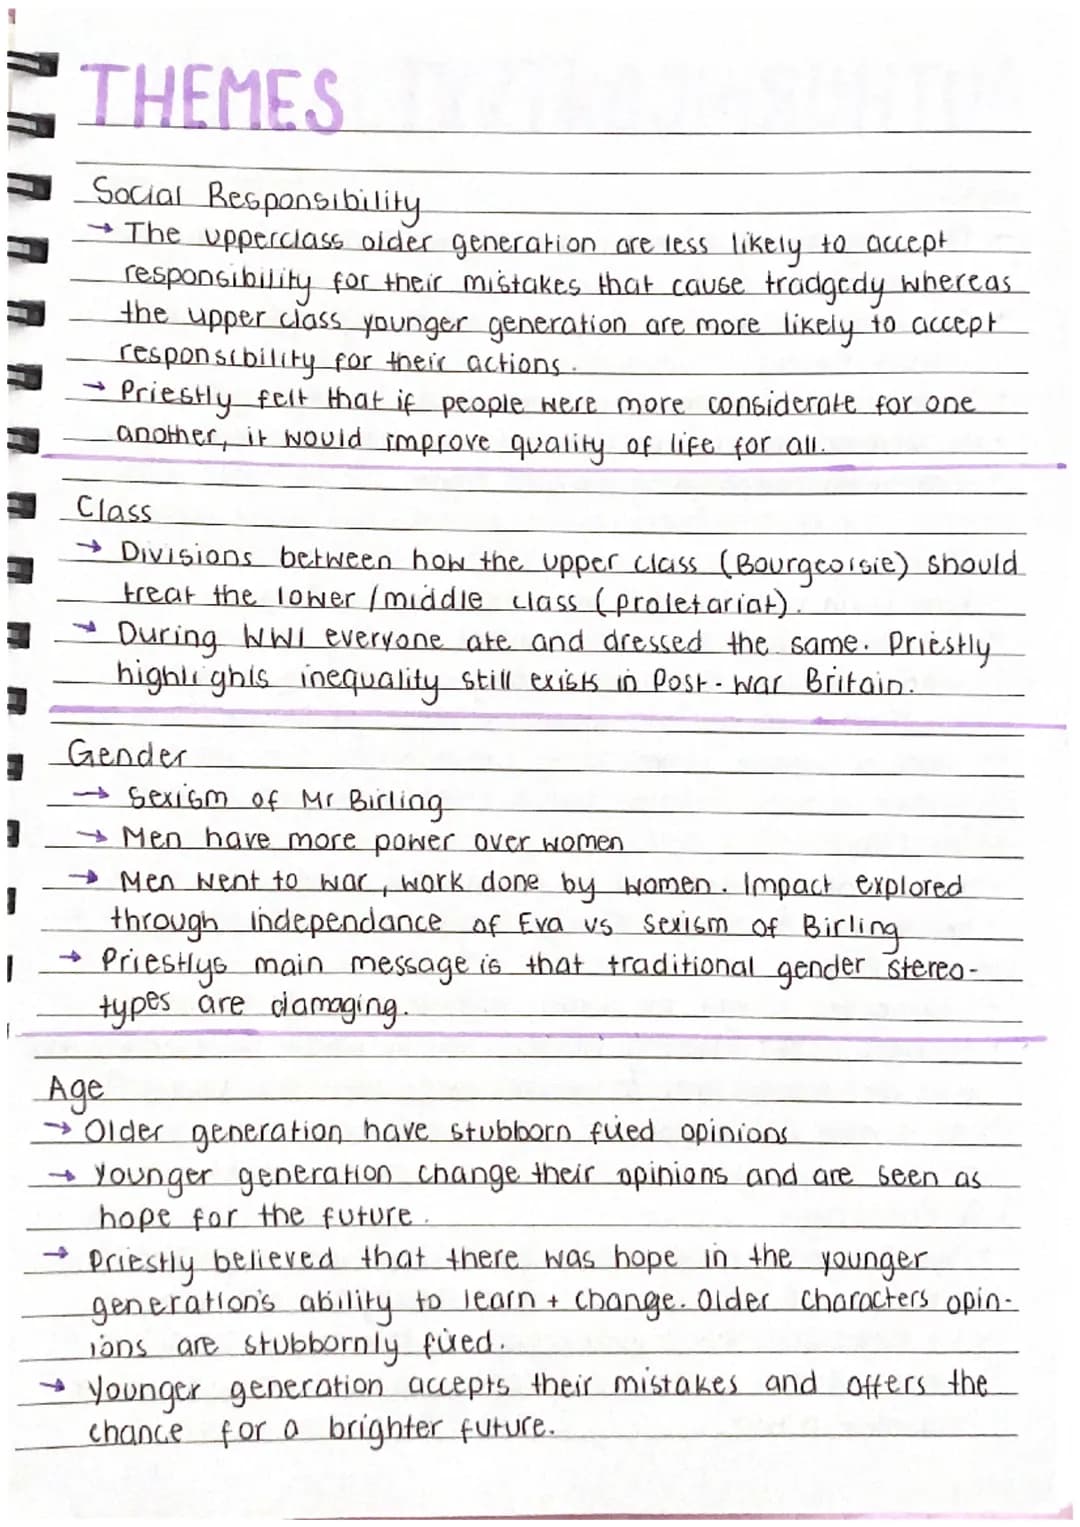 THEMES
Social Responsibility
→ The upperclass older generation are less likely to accept
responsibility for their mistakes that cause tradgedy whereas
the upper class younger generation are more likely to accept
responsibility for their actions.
→ Priestly felt that if people were more considerate for one
another, it would improve quality of life for all.
Class
→ Divisions between how the upper class (Bourgeoisie) should
treat the lower/middle class (proletariat).
→ During WWI everyone ate and dressed the same. Priestly
highlights inequality still exists in Post-war Britain.
Gender
→ Sexism of Mr Birling
→ Men have more power over women
→ Men went to war, work done by women. Impact explored
through independance of Eva vs Sexism of Birling
→ Priestlys main message is that traditional gender stereo-
types are damaging.
Age
→ Older generation have stubborn fixed opinions
→ Younger generation change their opinions and are seen as
hope for the future.
→ Priestly believed that there was hope in the younger
generation's ability to learn + change. Older characters opin-
ions are stubbornly fixed.
→ Younger generation accepts their mistakes and offers the
chance for a brighter future.